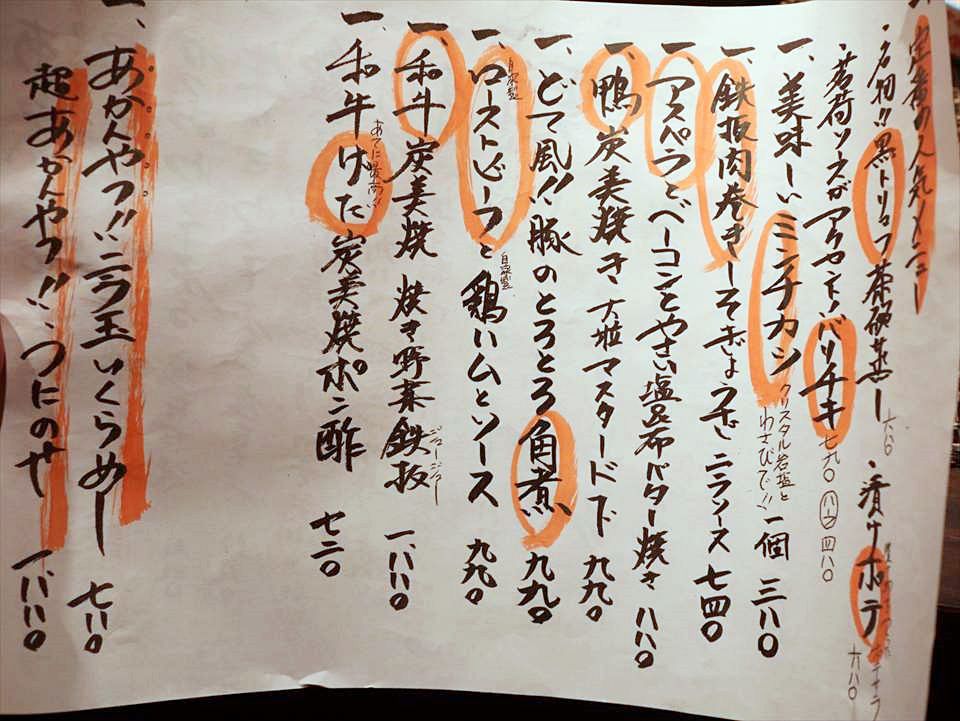 一、定番の人気メニュー
・名物!!黒トリュフ茶碗蒸し 六八〇
・漬けポテ 六八〇
・茗荷ソースがアクセント!バリチキ 七九〇 ハーフ 四八〇
一、美味しいミンチカツ クリスタル岩塩とわさびで!! 一個 三八〇
一、鉄板肉巻きしそぎょうざ ニラソース 七四〇
一、アスパラとベーコンとやさい塩昆布バター焼き 八八〇
一、鴨炭美焼き 大粒マスタード 九九〇
一、どて風!!豚のとろとろ角煮 九九〇
一、自家製ローストビーフと自家製鶏ハムといソース 九九〇
一、和牛炭美焼 焼き野菜鉄板 ジュージュー 一、八八〇
一、和牛けた炭美焼ポン酢 あてに最高!! 七二〇
一、あかんやつ!!ニラ玉いくらめし 七八〇
超あかんやつ!!うにのせ 一、八八〇